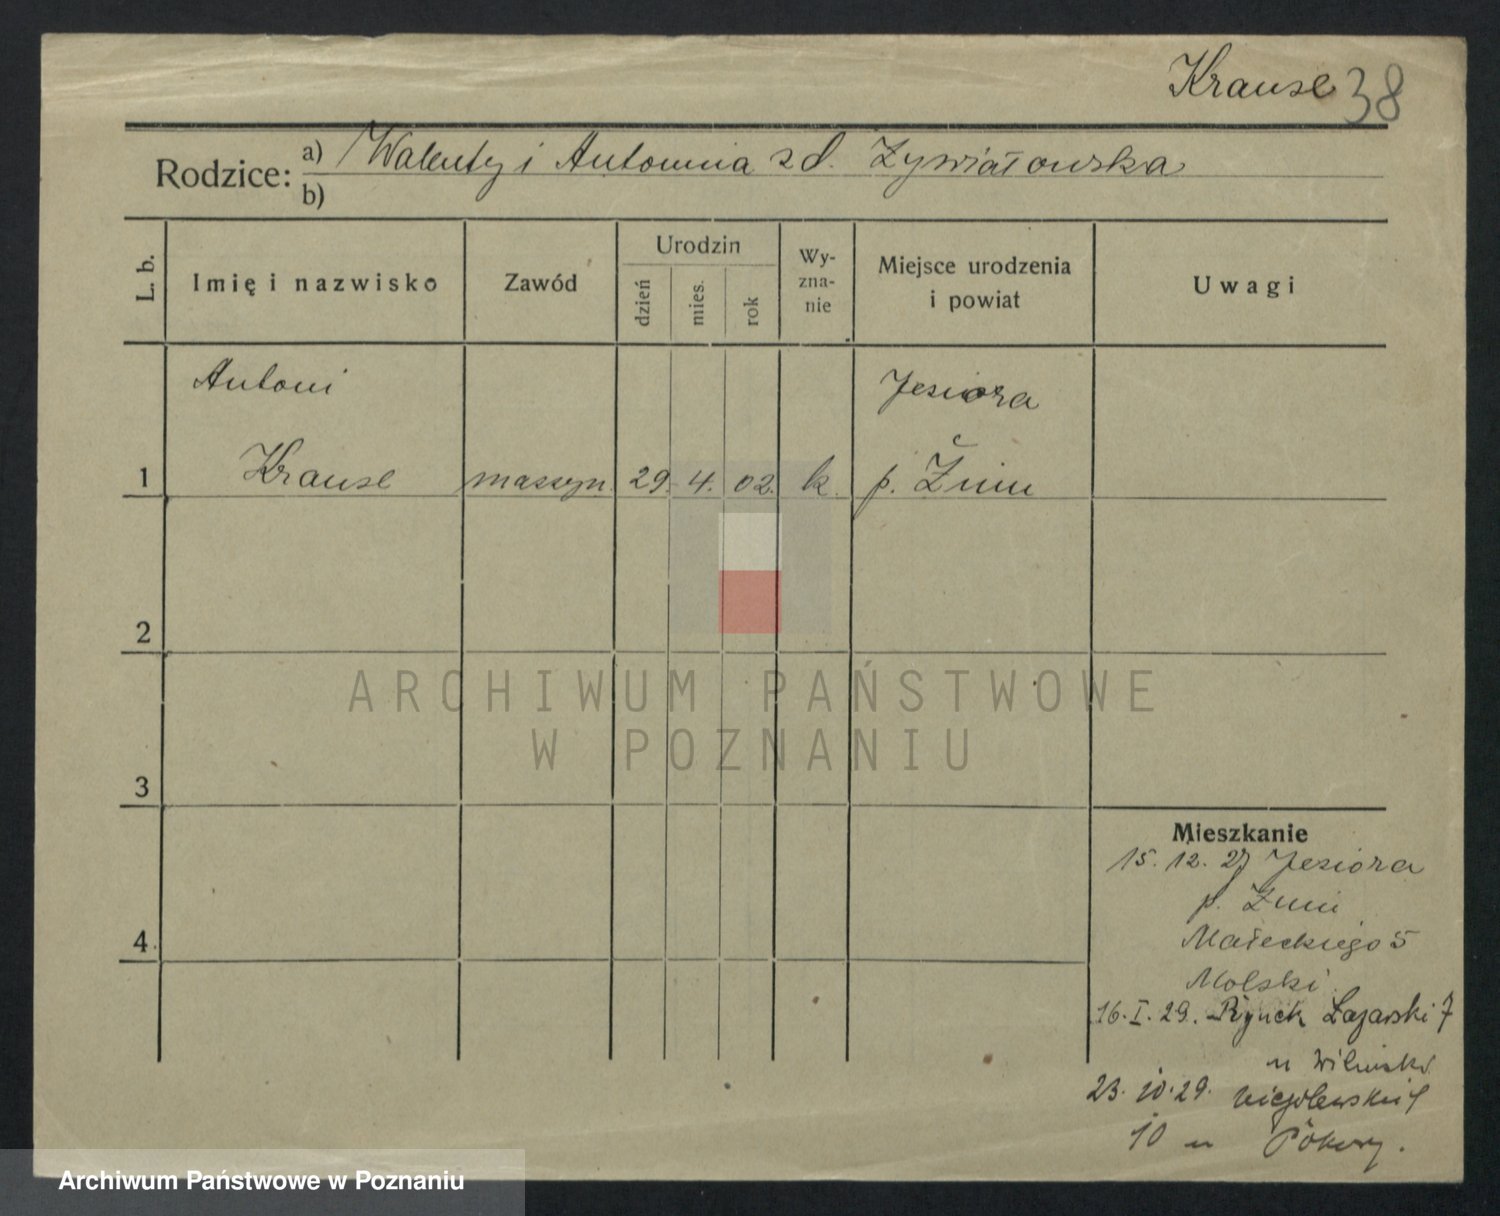 Krause 38
Rodzice: a) Walenty i Antonina zd. Zywiałowska
b)
L. b. Imię i nazwisko Zawód Urodzin dzień mies. rok Wyznanie Miejsce urodzenia i powiat Uwagi
Antoni Jesiora
1 Krause maszyn. 29. 4. 02. k. p. Žnin
2
ARCHIWUM PAŃSTWOWE
W POZNANIU
3
Mieszkanie
15. 12. 27 Jesiora
p. Znin
4. Małeckiego 5
Molski
16. I. 29. Rynek Łazarski 7
u Wilinski
23. 10. 29. Niegolewskich
10 u
Archiwum Państwowe w Poznaniu